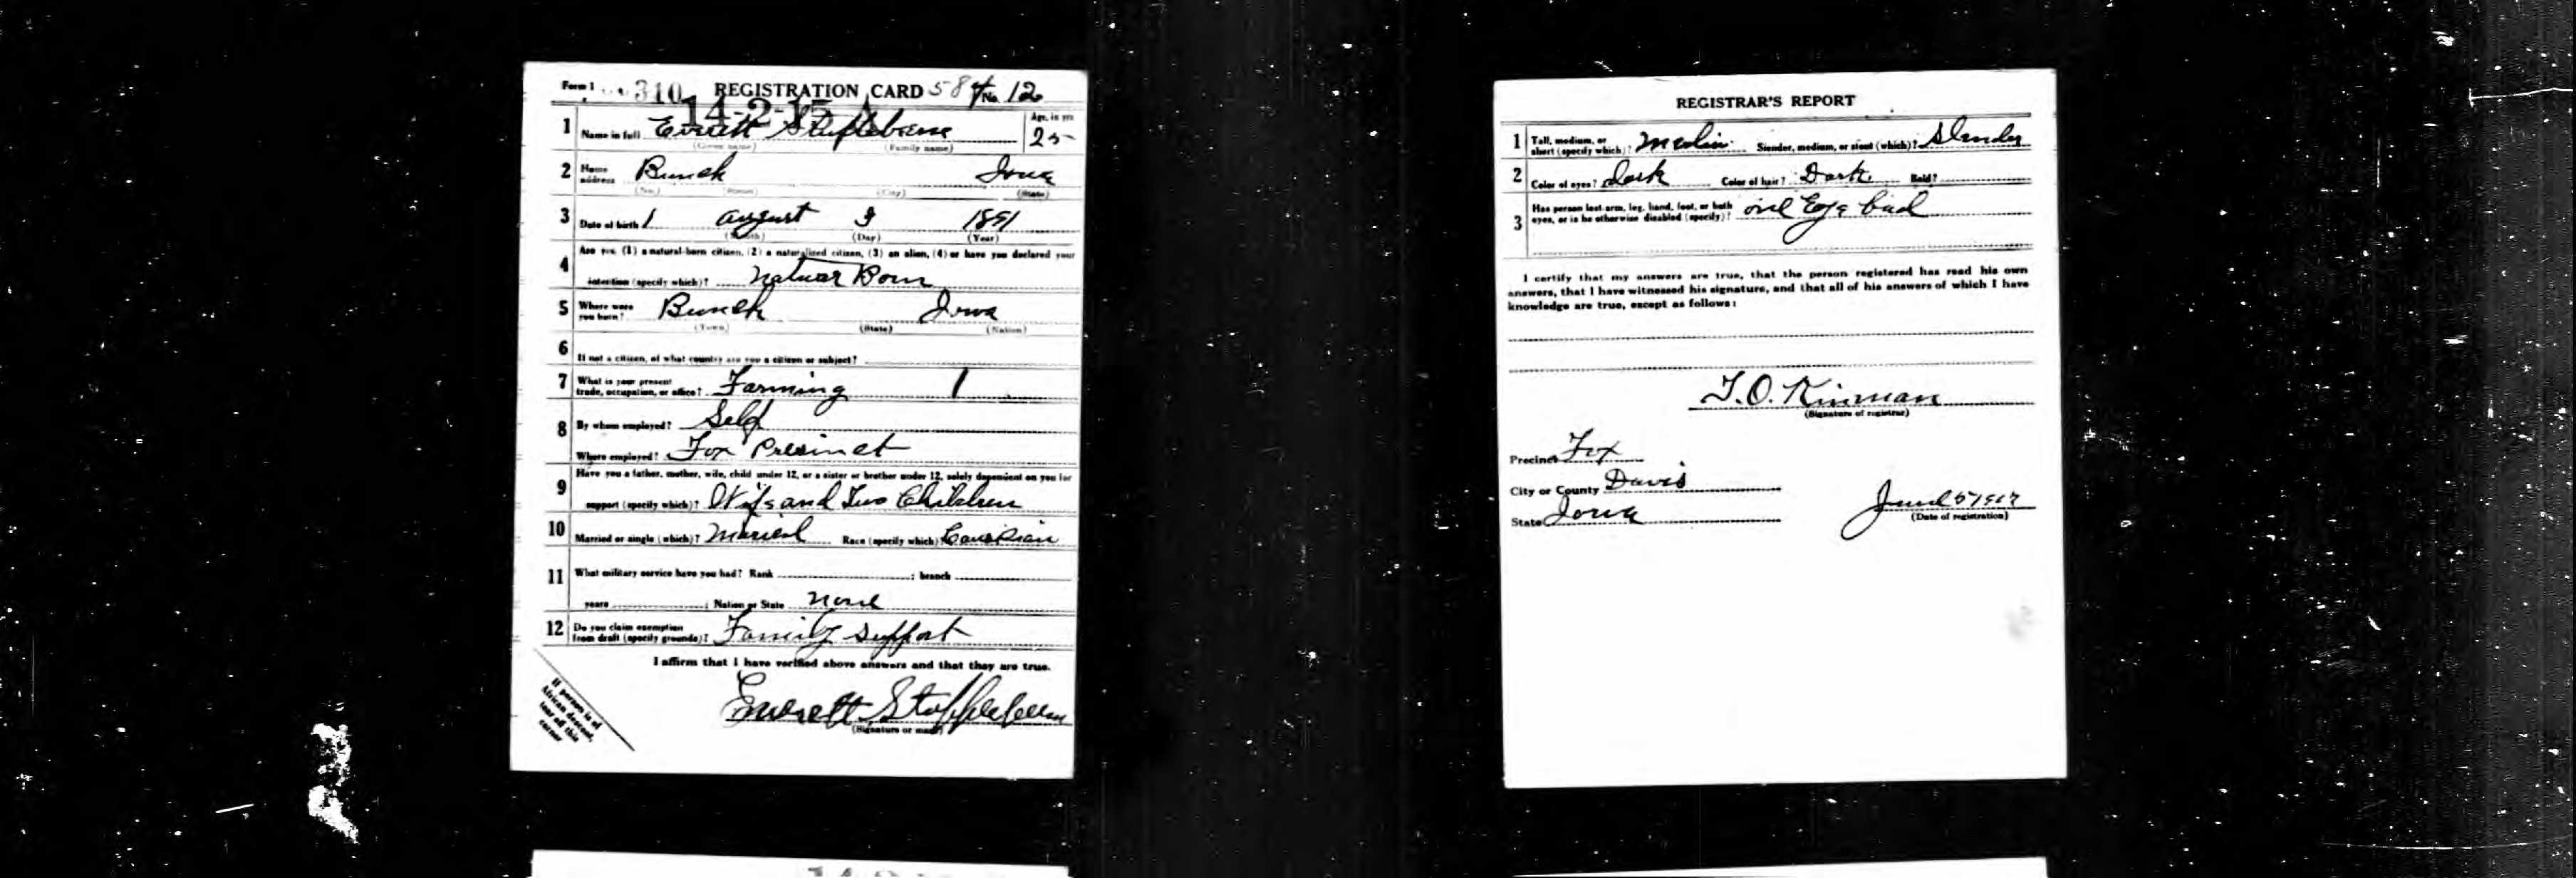 Form 1 310 REGISTRATION CARD 584 No. 12
14-2-15 A
1 Name in full Everett Stufflebeme Age, in yrs. 25
(Given name) (Family name)
2 Home address Bunch Iowa
(No.) (Street) (City) (State)
3 Date of birth August 9 1891
(Month) (Day) (Year)
Are you (1) a natural-born citizen, (2) a naturalized citizen, (3) an alien, (4) or have you declared your
4 intention (specify which)? Natuar Born
5 Where were you born? Bunch Iowa
(Town) (State) (Nation)
6 If not a citizen, of what country are you a citizen or subject?
7 What is your present trade, occupation, or office? Farming
8 By whom employed? Self
Where employed? Fox Presinct
Have you a father, mother, wife, child under 12, or a sister or brother under 12, solely dependent on you for
9 support (specify which)? Wife and Two Children
10 Married or single (which)? Maried Race (specify which)?
11 What military service have you had? Rank ; branch
years ; Nation or State None
12 Do you claim exemption from draft (specify grounds)? Family Support
I affirm that I have verified above answers and that they are true.
Everett Stufflebeem
(Signature or mark)
If person is of
African descent,
tear off this
corner
REGISTRAR'S REPORT
1 Tall, medium, or short (specify which)? Slender, medium, or stout (which)? Slender
2 Color of eyes? dark Color of hair? Dark Bald?
3 Has person lost arm, leg, hand, foot, or both eyes, or is he otherwise disabled (specify)? one Eye bad
I certify that my answers are true, that the person registered has read his own
answers, that I have witnessed his signature, and that all of his answers of which I have
knowledge are true, except as follows:
T.O. Kinman
(Signature of registrar)
Precinct Fox
City or County Davis
State Iowa
June 5 1917
(Date of registration)